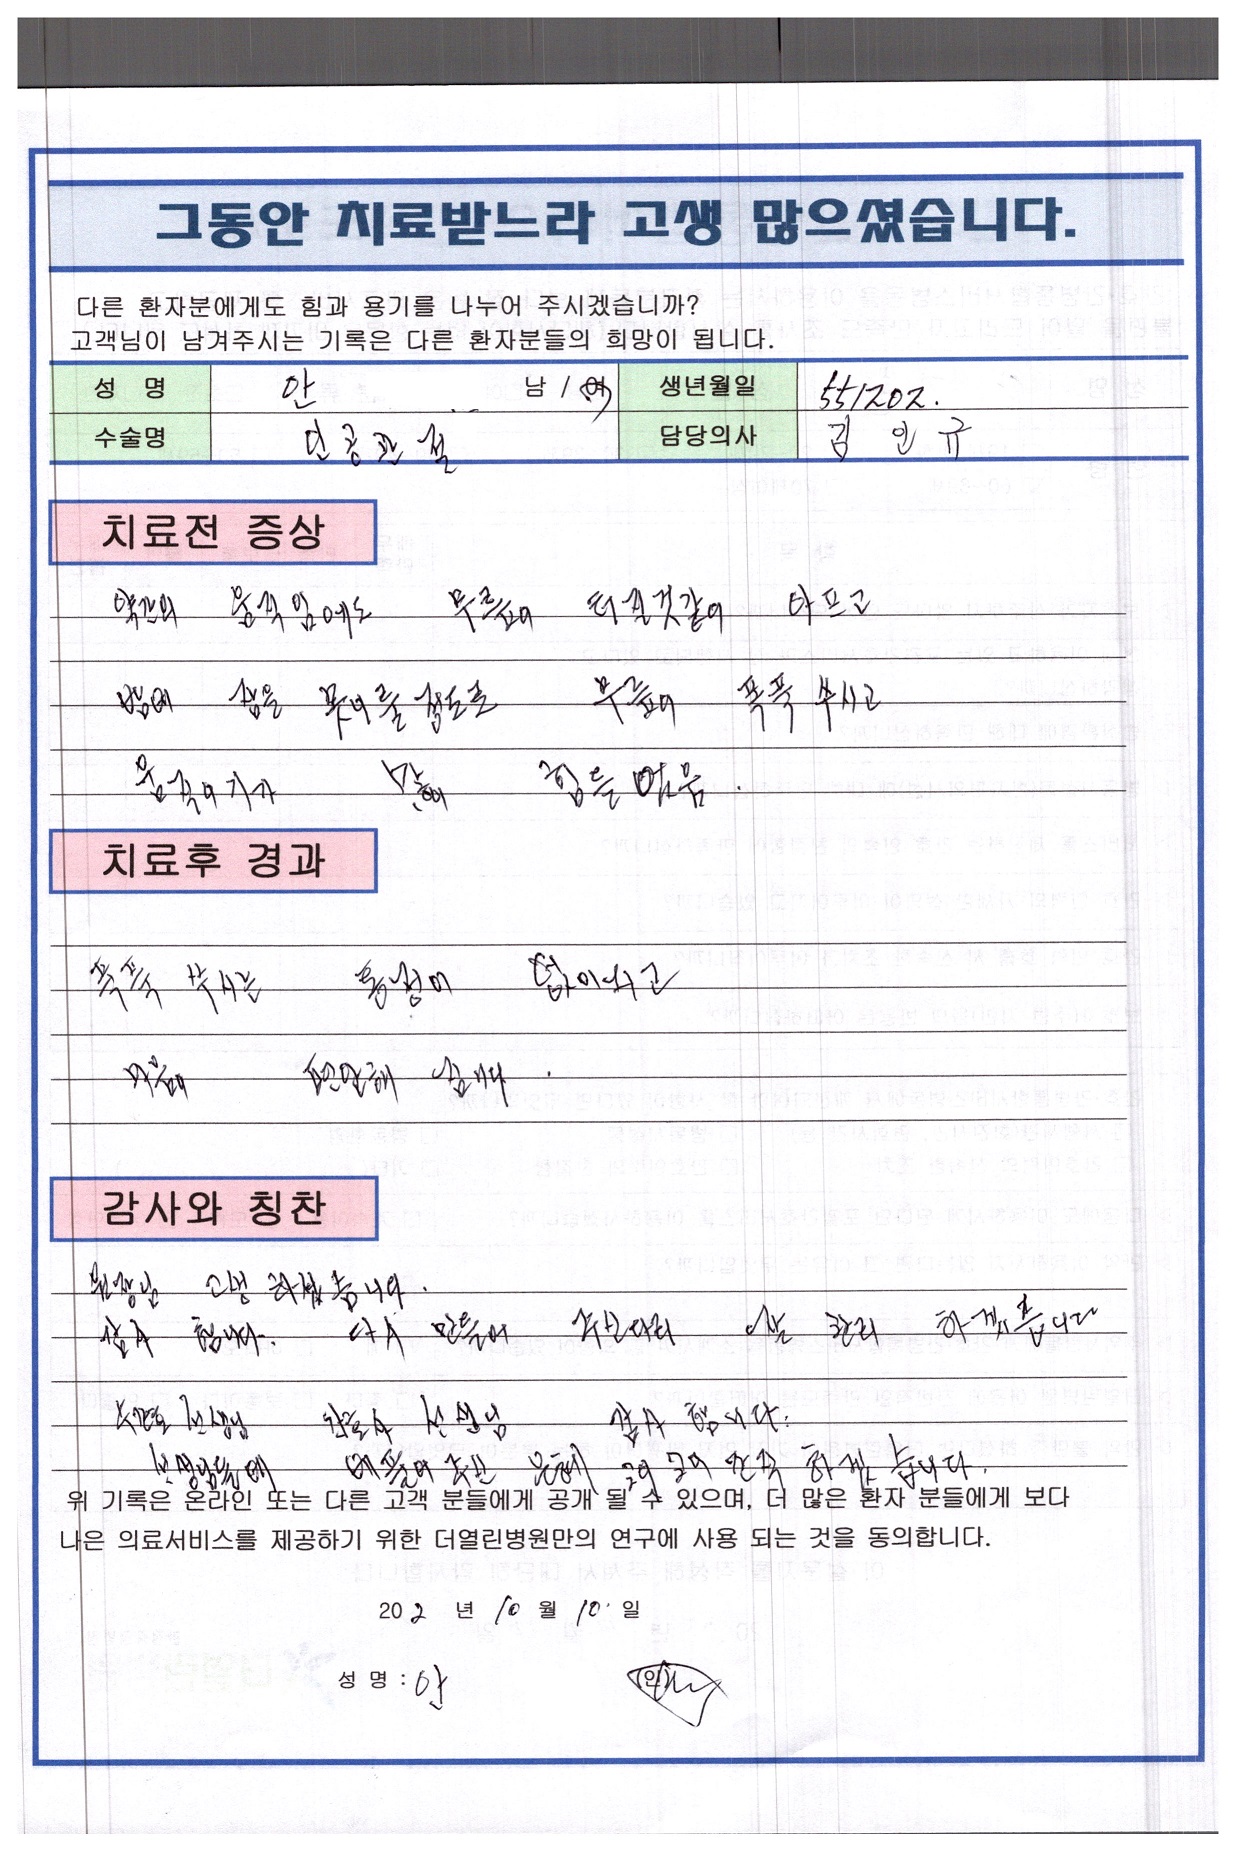 그동안 치료받느라 고생 많으셨습니다.
다른 환자분에게도 힘과 용기를 나누어 주시겠습니까?
고객님이 남겨주시는 기록은 다른 환자분들의 희망이 됩니다.
성 명 안 남 / 여 생년월일 551202.
수술명 인공관절 담당의사 김민규
치료전 증상
약간의 움직임에도 무릎이 터질것같이 아프고
밤에 잠을 못이룰정도로 무릎이 푹푹 쑤시고
움직이기가 많이 힘들었음.
치료후 경과
푹푹 쑤시는 통증이 없어지고
마음이 편안해 집니다.
감사와 칭찬
원장님 고생 하셨습니다.
감사 합니다. 다시 만들어 주신다리 잘 관리 하겠습니다
간호 선생님 선생님 감사 합니다.
선생님들에 베풀어주신 은혜 만족 하겠습니다.
위 기록은 온라인 또는 다른 고객 분들에게 공개 될 수 있으며, 더 많은 환자 분들에게 보다
나은 의료서비스를 제공하기 위한 더열린병원만의 연구에 사용 되는 것을 동의합니다.
202 년 10 월 10. 일
성 명 : 안 (인)